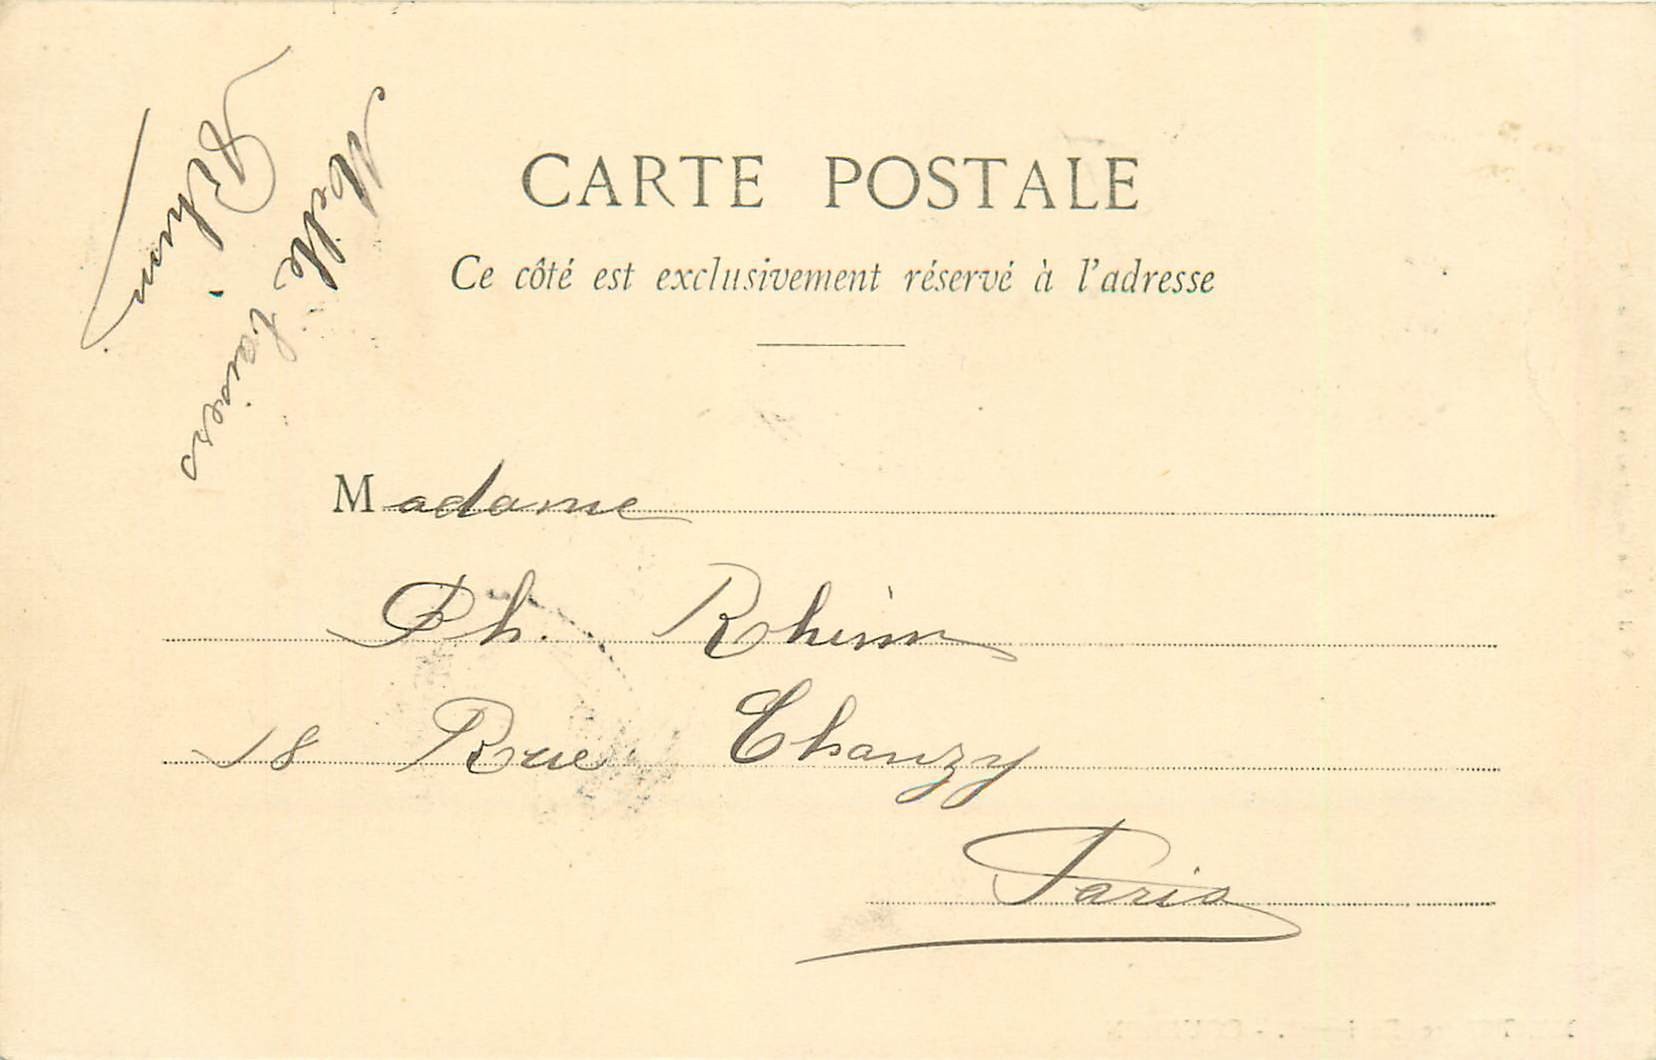 Mille baisers
CARTE POSTALE
Ce côté est exclusivement réservé à l'adresse
Madame
Ph. Rhimm
18 Rue Chanzy
Paris